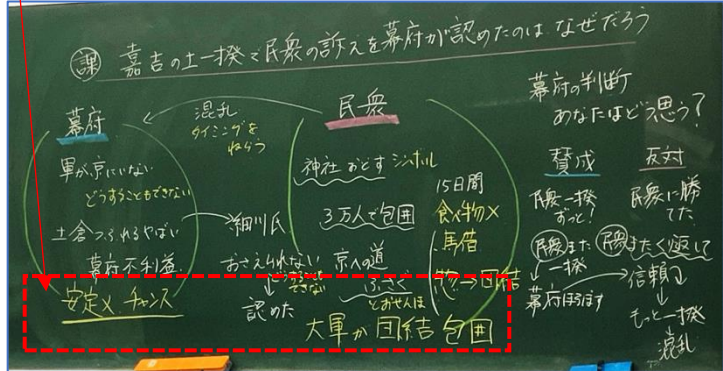 課 嘉吉の土一揆で民衆の訴えを幕府が認めたのは なぜだろう
幕府
軍が京にいない
どうすることもできない
土倉つぶれるやばい
幕府不利益
安定× チャンス
混乱
タイミングを
ねらう
細川氏
おさえられない
認めた
民衆
神社 おどす シンボル
3万人で包囲
京への道
ふさぐ
とおせんぼ
15日間
食べ物×
馬借
怒→団結
大軍が団結 包囲
幕府の判断
あなたはどう思う?
賛成
民衆一揆
ずっと!
民衆また
一揆
幕府ほろぼす
反対
民衆に勝
てた
民衆またくり返して
信頼↓
もっと一揆
混乱